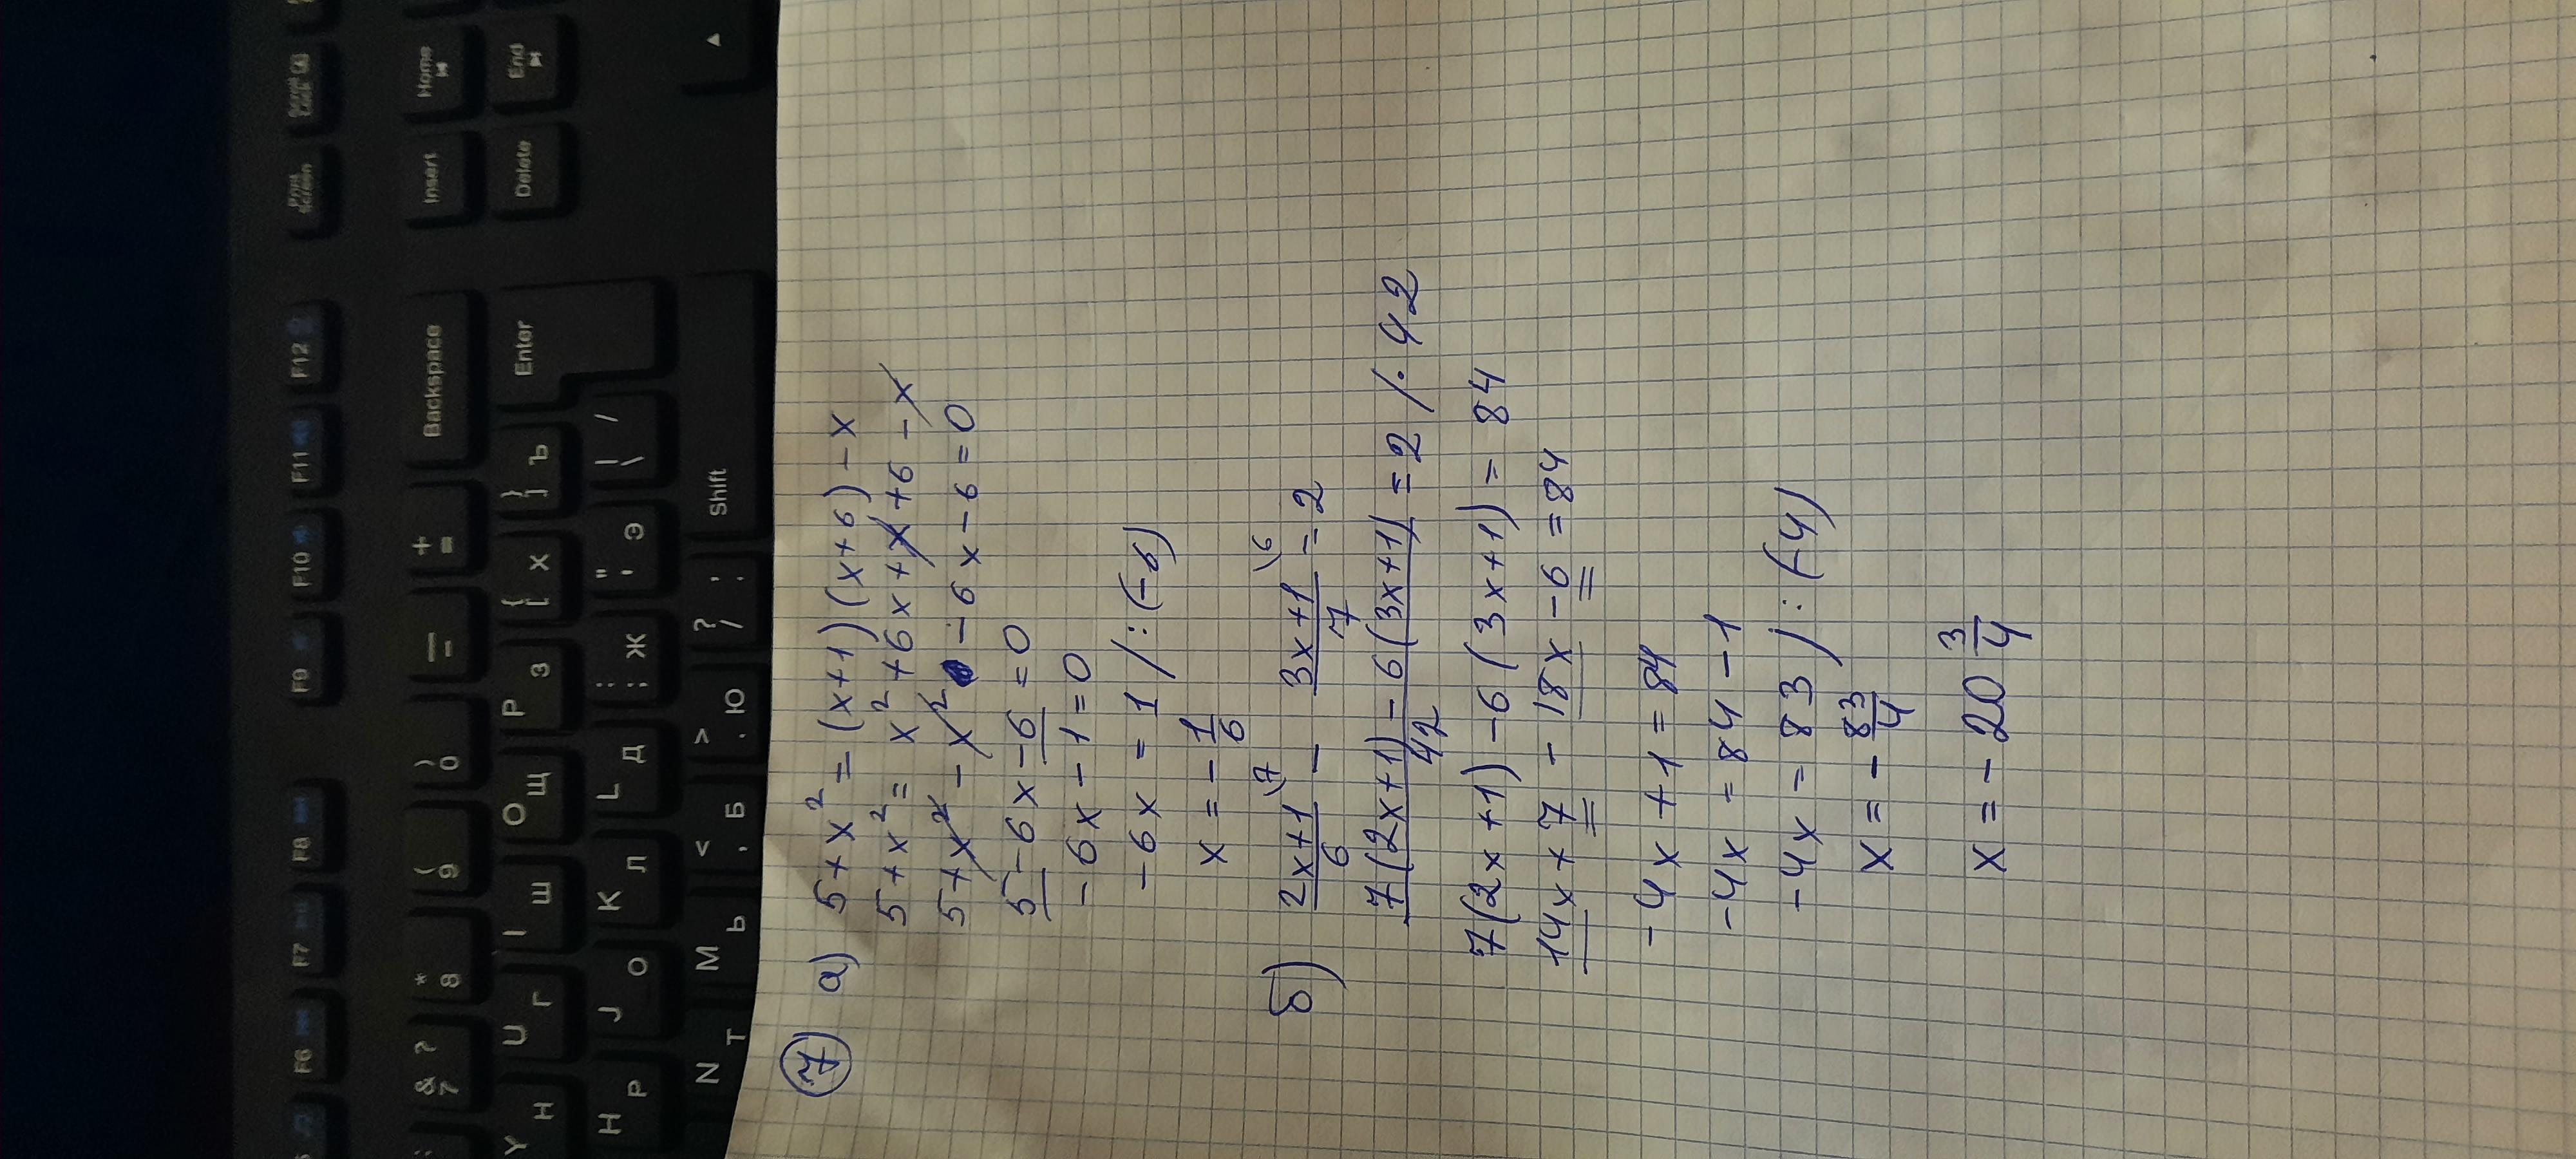 7 а) 5+x²=(x+1)(x+6)-x
5+x²= x²+6x+x+6-x
5+x²-x²-6x-6=0
5-6x-6=0
-6x-1=0
-6x=1 /:(-6)
x=-1/6
б) 2x+1/6 \7 - 3x+1/7 \6 =2
7(2x+1)-6(3x+1)/42 =2 /·42
7(2x+1)-6(3x+1)=84
14x+7-18x-6=84
-4x+1=84
-4x=84-1
-4x=83 /:(-4)
x=-83/4
x=-20 3/4
Print Screen
Scroll Lock
Insert
Home
Delete
End
F6 F7 F8 F9 F10 F11 F12
& 7 ? * 8 ( 9 ) 0 _ - + = Backspace
Y H U Г I Ш O Щ P З { [ Х } ] Ъ Enter
H Р J О K Л L Д : ; Ж " ' Э | \ /
N Т M Ь < , Б > . Ю ? / . , Shift